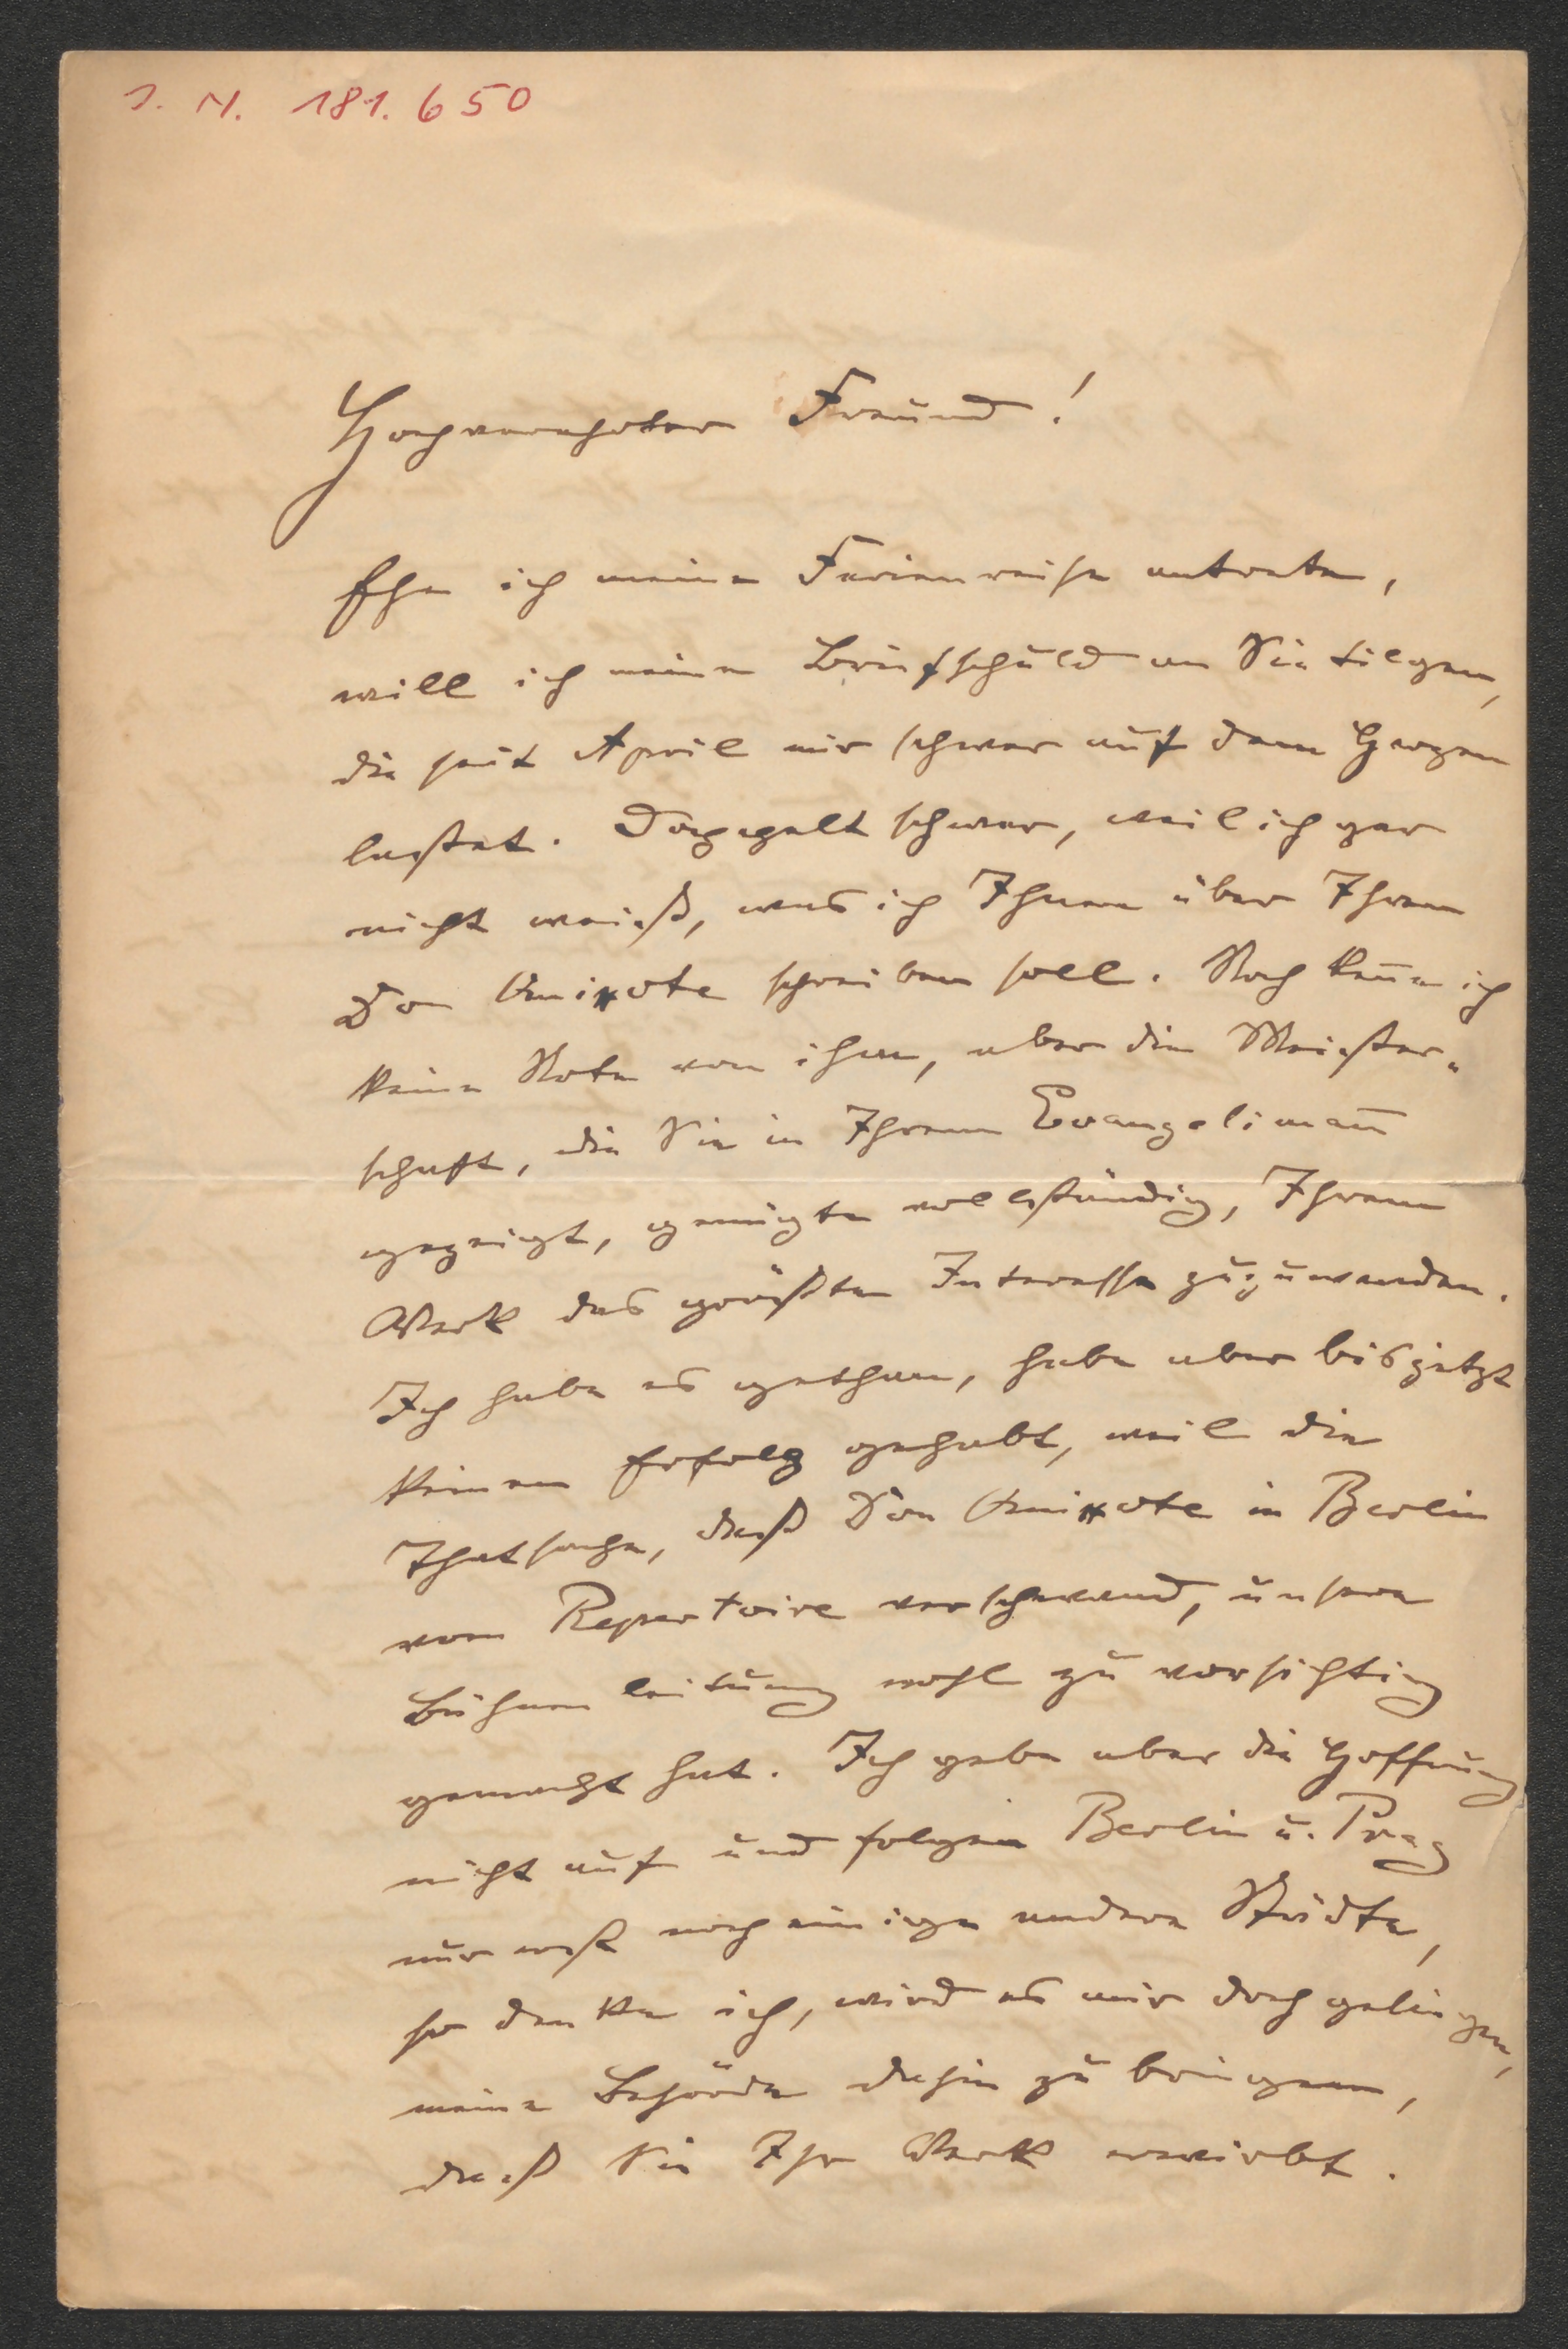 J. N. 181.650
Hochverehrter Freund!
Ehe ich meine Ferienreise antrete,
will ich meine Briefschuld an Sie tilgen,
die seit April mir schwer auf dem Herzen
lastet. Doppelt schwer, weil ich gar
nicht weiß, was ich Ihnen über Ihren
Don Quixote schreiben soll. Noch kenne ich
keine Note von ihm, aber die Meister-
schaft, die Sie in Ihrem Evangelimañ
gezeigt, genügte vollständig, Ihrem
Werk das größte Interesse zuzuwenden.
Ich habe es gethan, habe aber bis jetzt
keinen Erfolg gehabt, weil die
Thatsache, daß Don Quixote in Berlin
vom Repertoire verschwand, unsere
Bühnenleitung wohl zu vorsichtig
gemacht hat. Ich gebe aber die Hoffnung
nicht auf und folgen Berlin u. Prag
nur erst noch einige andere Städte,
so denke ich, wird es mir doch gelingen,
meine Behörde dahin zu bringen,
daß Sie Ihr Werk erwirbt.